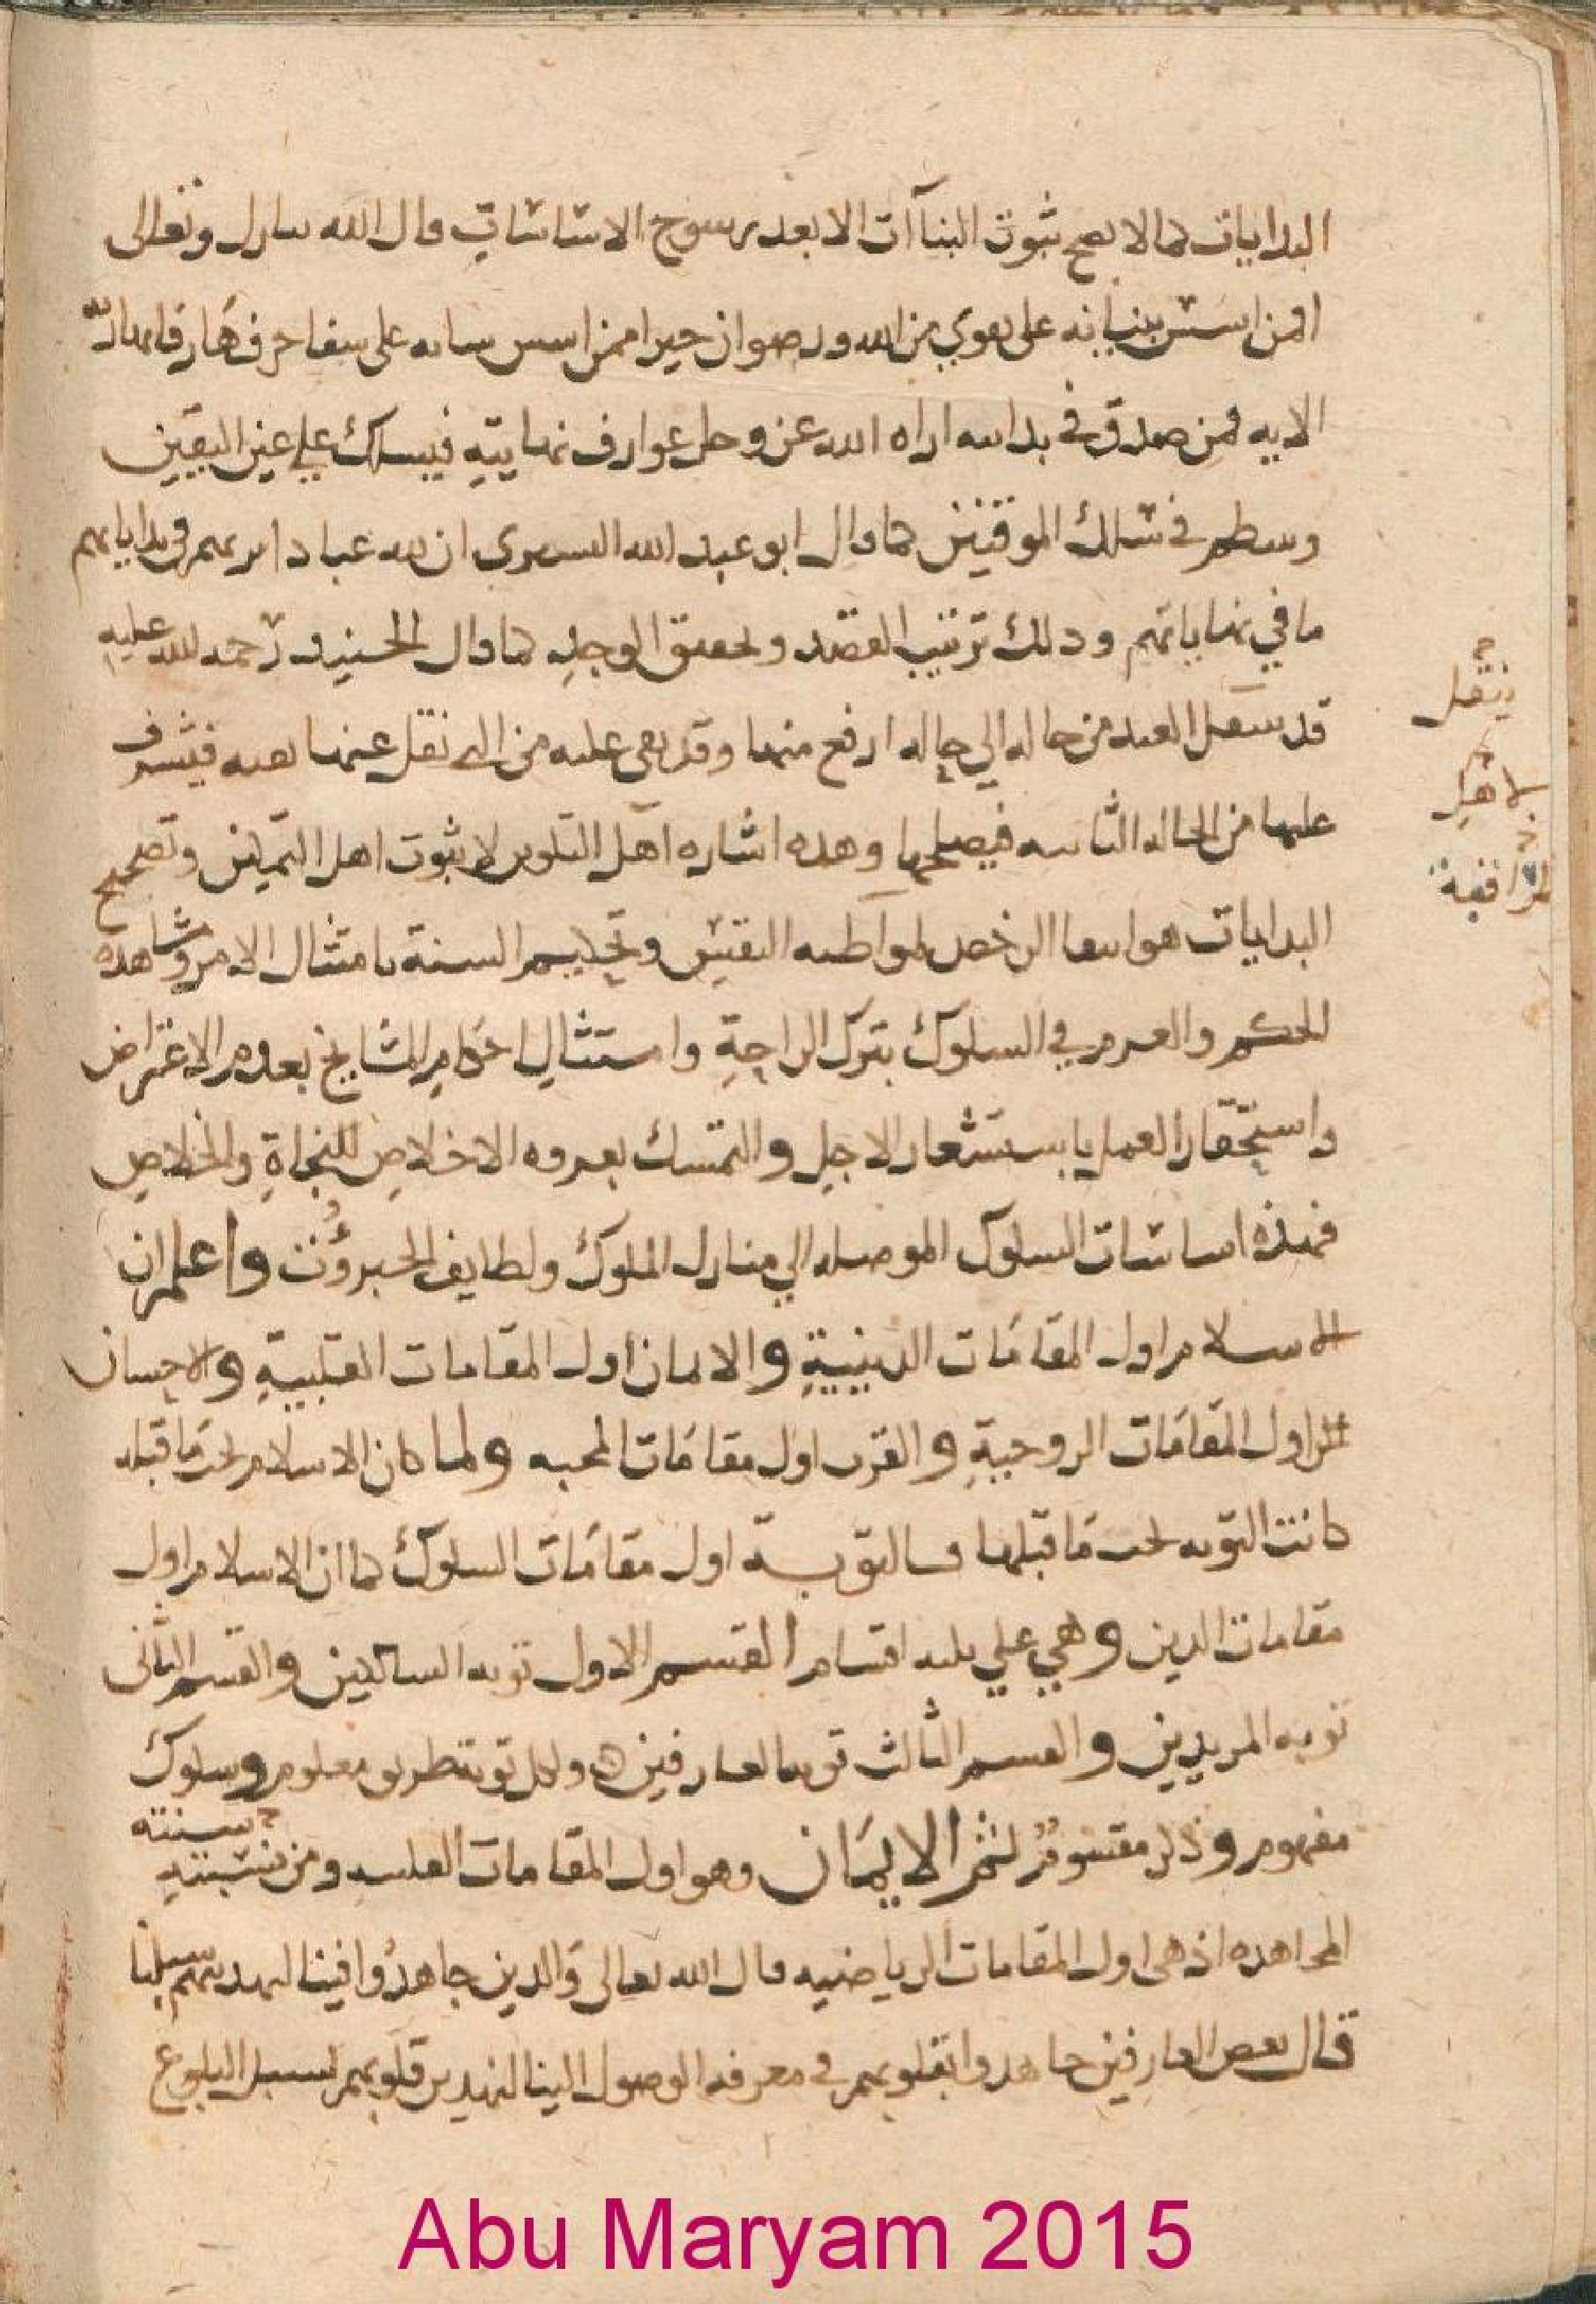 البدايات كما لا يصح ثبوت البنآات الا بعد رسوخ الاساسات قال الله تبارك وتعالى
افمن اسس بنيانه على تقوي من الله ورضوان خير اممن اسس بنيانه على شفا جرف هار فانهار به
الايه فمن صدق في بدايته اراه الله عز وجل عوارف نهايته فيسلك علي عين اليقين
وينظم في سلك الموقنين كما قال ابو عبد الله التستري ان لله عبادا يريهم في بداياتهم
ما في نهاياتهم وذلك ترتيب القصد وتحقيق الوجد كما قال الجنيد رحمه الله عليه
قد ينتقل العبد من حاله الي حاله ارفع منها وقد بقي عليه من التي نقل عنها بقيه فيشرف
عليها من الحاله الثانيه فيصلحها وهذه اشاره اهل التلوين لا ثبوت اهل التمكين وتصحيح
البدايات هو اتقا الرخص لمواظبه اليقين وتحكيم السنة بامتثال الامر ومشاهده
الحكم والعزم في السلوك بترك الراحة وامتثال احكام المشايخ بعدم الاعتراض
واستحقار العمل باستشعار الاجل والتمسك بعروه الاخلاص للنجاة والخلاص
فهذه اساسات السلوك الموصله الي منازل الملوك ولطايف الجبروت واعلم ان
الاسلام اول المقامات الدينية والايمان اول المقامات القلبية والاحسان
اول المقامات الروحية والقرب اول مقامات المحبه ولما كان الاسلام يجب ما قبله
كانت التوبه تجب ما قبلها فالتوبة اول مقامات السلوك كما ان الاسلام اول
مقامات الدين وهي علي ثلثه اقسام القسم الاول توبه السالكين والقسم الثاني
توبه المريدين والقسم الثالث توبه العارفين ولكل توبة طريق معلوم وسلوك
مفهوم وذكر مقسوم ثم الايمان وهو اول المقامات القلبيه ومن نسبته سنته
المجاهده اذ هي اول المقامات الرياضيه قال الله تعالى والذين جاهدوا فينا لنهدينهم سبلنا
قال بعض العارفين جاهدوا بقلوبهم في معرفه الوصول الينا لنهدين قلوبهم لسبل البلوغ
ينتقل
لاهل
المراقبة
Abu Maryam 2015